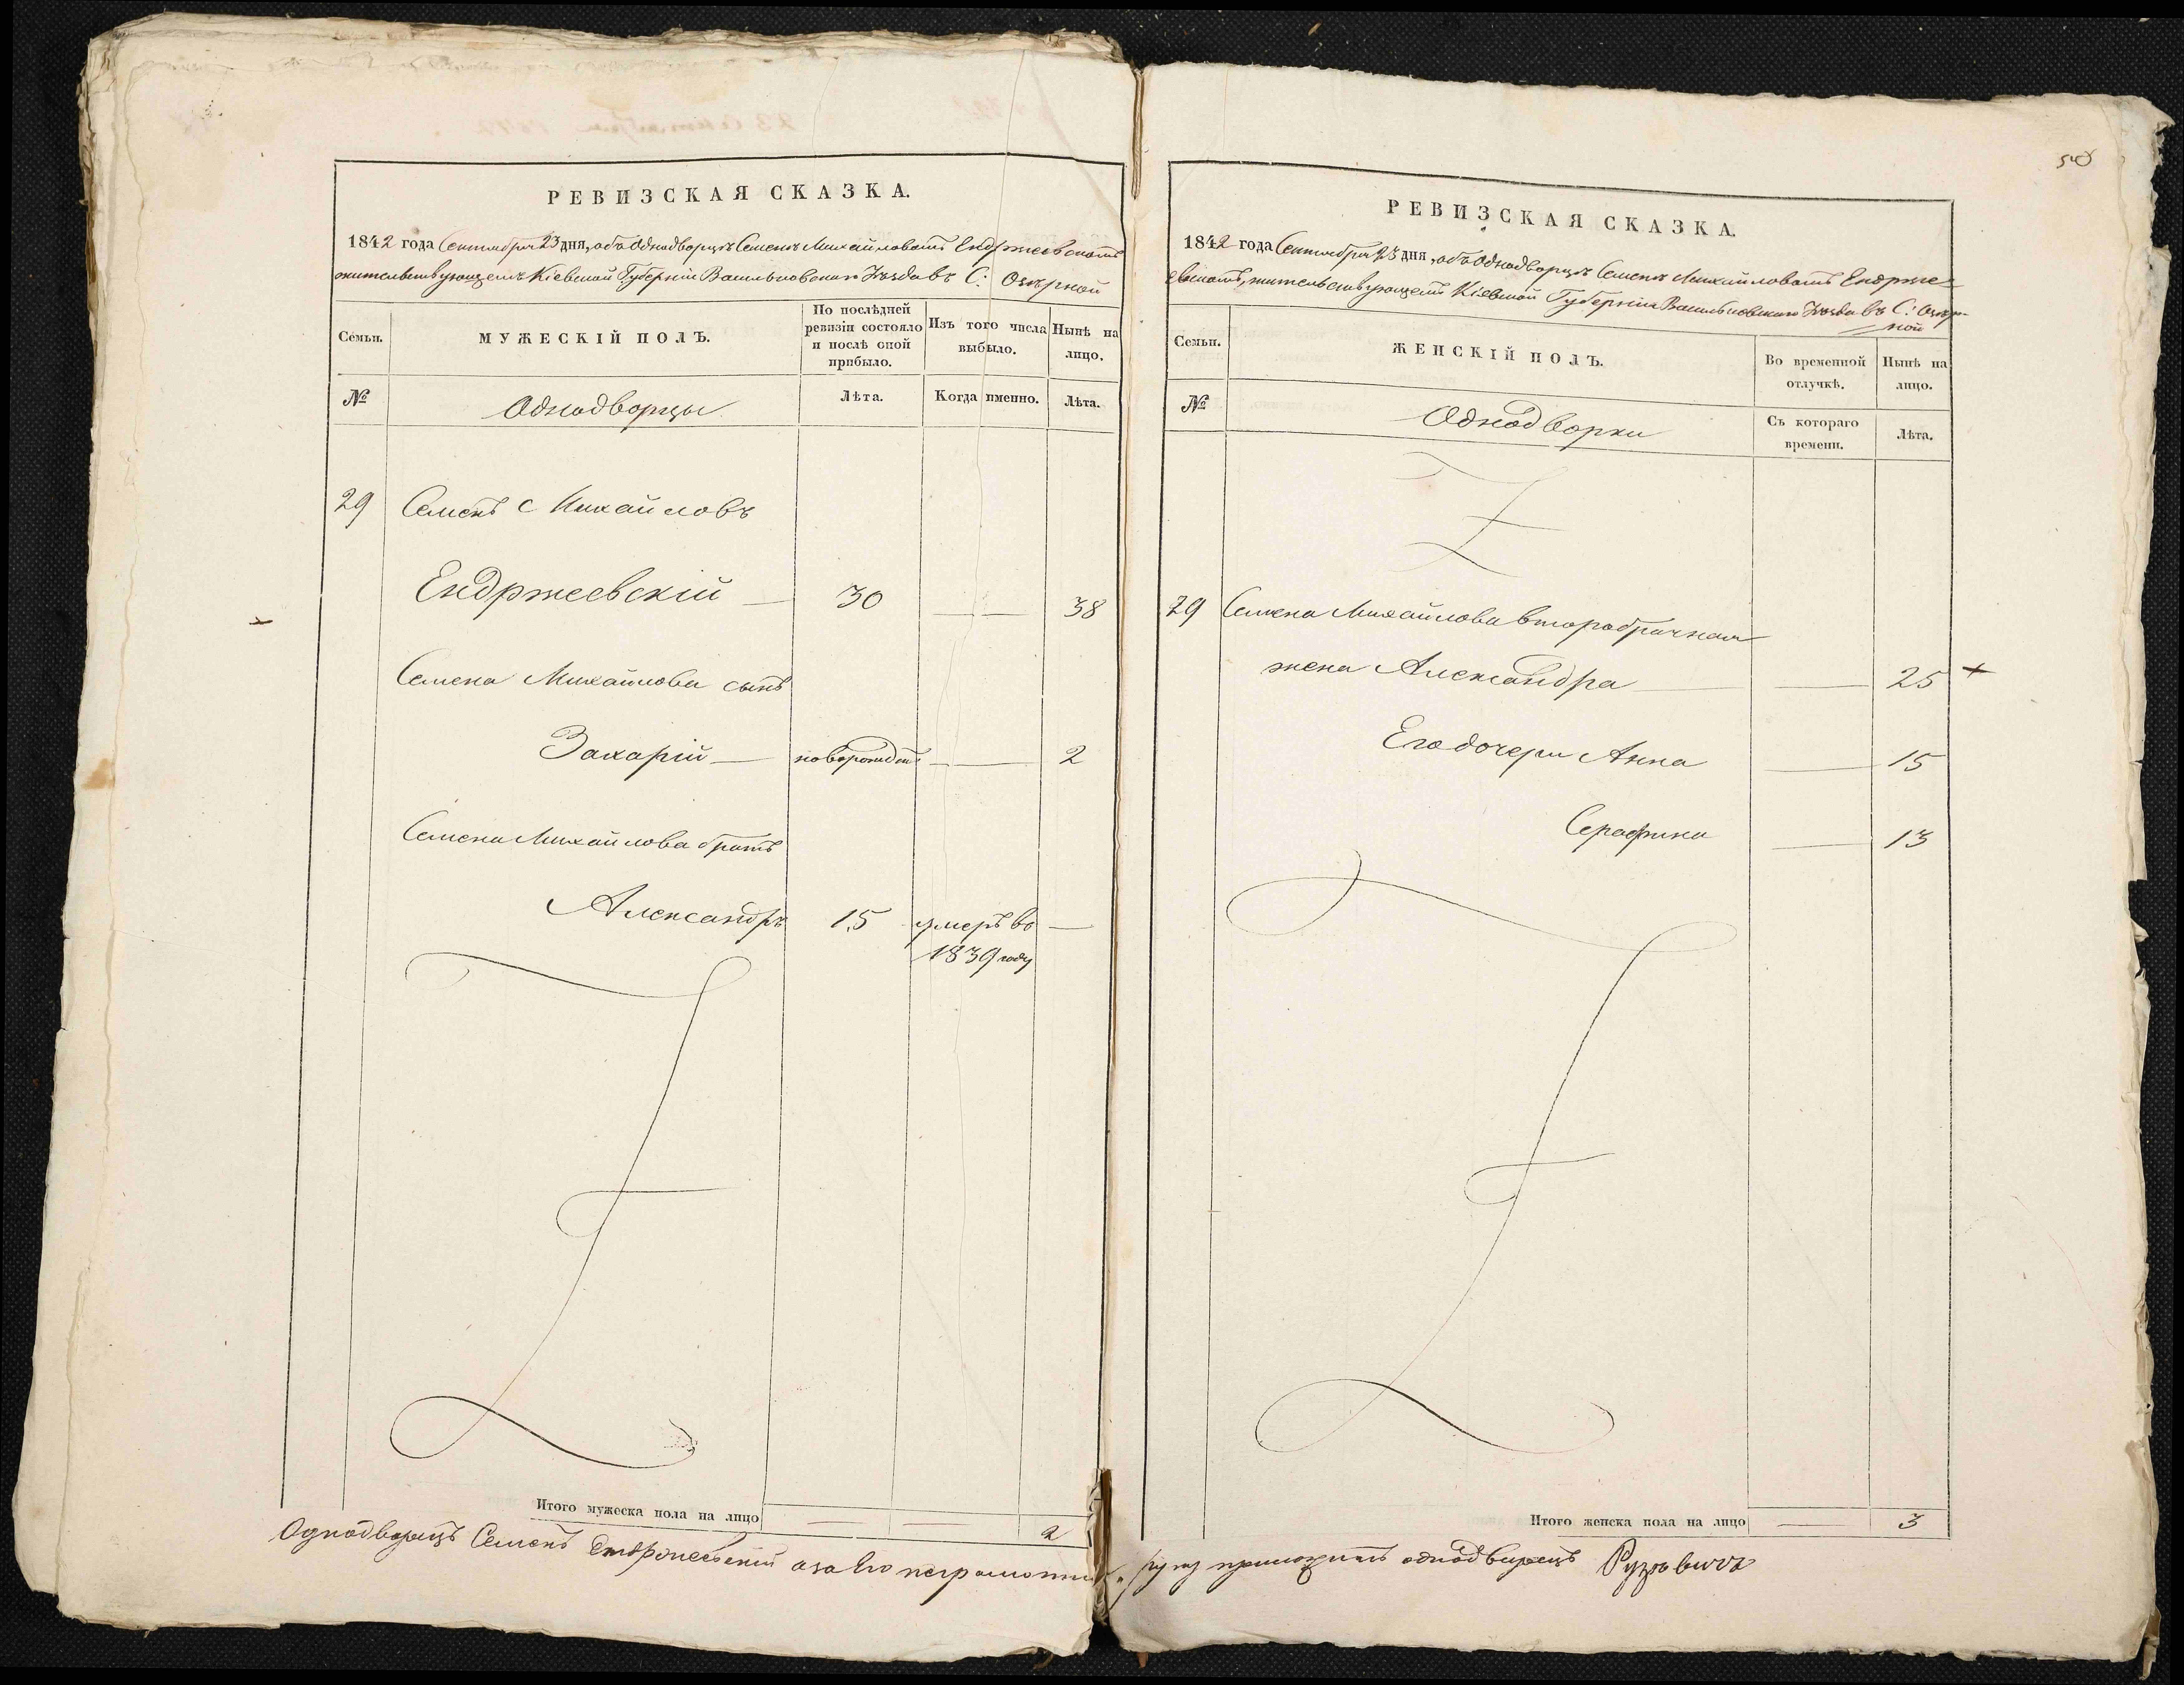 РЕВИЗСКАЯ СКАЗКА.
1842 года Сентября 23 дня, объ Однодворцѣ Семенѣ Михайловомъ Ендржеевскомъ
жительствующемъ Кіевской Губерніи Васильковскаго Уѣзда въ С: Озѣрной
Семьи.
МУЖЕСКІЙ ПОЛЪ.
По послѣдней
ревизіи состояло
и послѣ оной
прибыло.
Изъ того числа
выбыло.
Нынѣ на
лицо.
№
Однодворцы
Лѣта.
Когда именно.
Лѣта.
29 Семенъ Михайловъ
Ендржеевскій — 30 — 38
Семена Михайлова сынъ
Захарій — новорожден — 2
Семена Михайлова братъ
Александръ 15 умеръ въ —
1839 году
Итого мужеска пола на лицо — — 2
Однодворецъ Семенъ Ендржеевскій а за его неграмотн
50
РЕВИЗСКАЯ СКАЗКА.
1842 года Сентября 23 дня, объ Однодворцѣ Семенѣ Михайловомъ Ендрже-
евскомъ, жительствующемъ Кіевской Губерніи Васильковскаго Уѣзда въ С: Озѣр-
ной
Семьи.
ЖЕНСКІЙ ПОЛЪ.
Во временной
отлучкѣ.
Нынѣ на
лицо.
№
Однодворки
Съ котораго
времени.
Лѣта.
29 Семена Михайлова второбрачная
жена Александра — — 25
Его дочери Анна — 15
Серафина — 13
Итого женска пола на лицо — 3
руку приложилъ однодворецъ